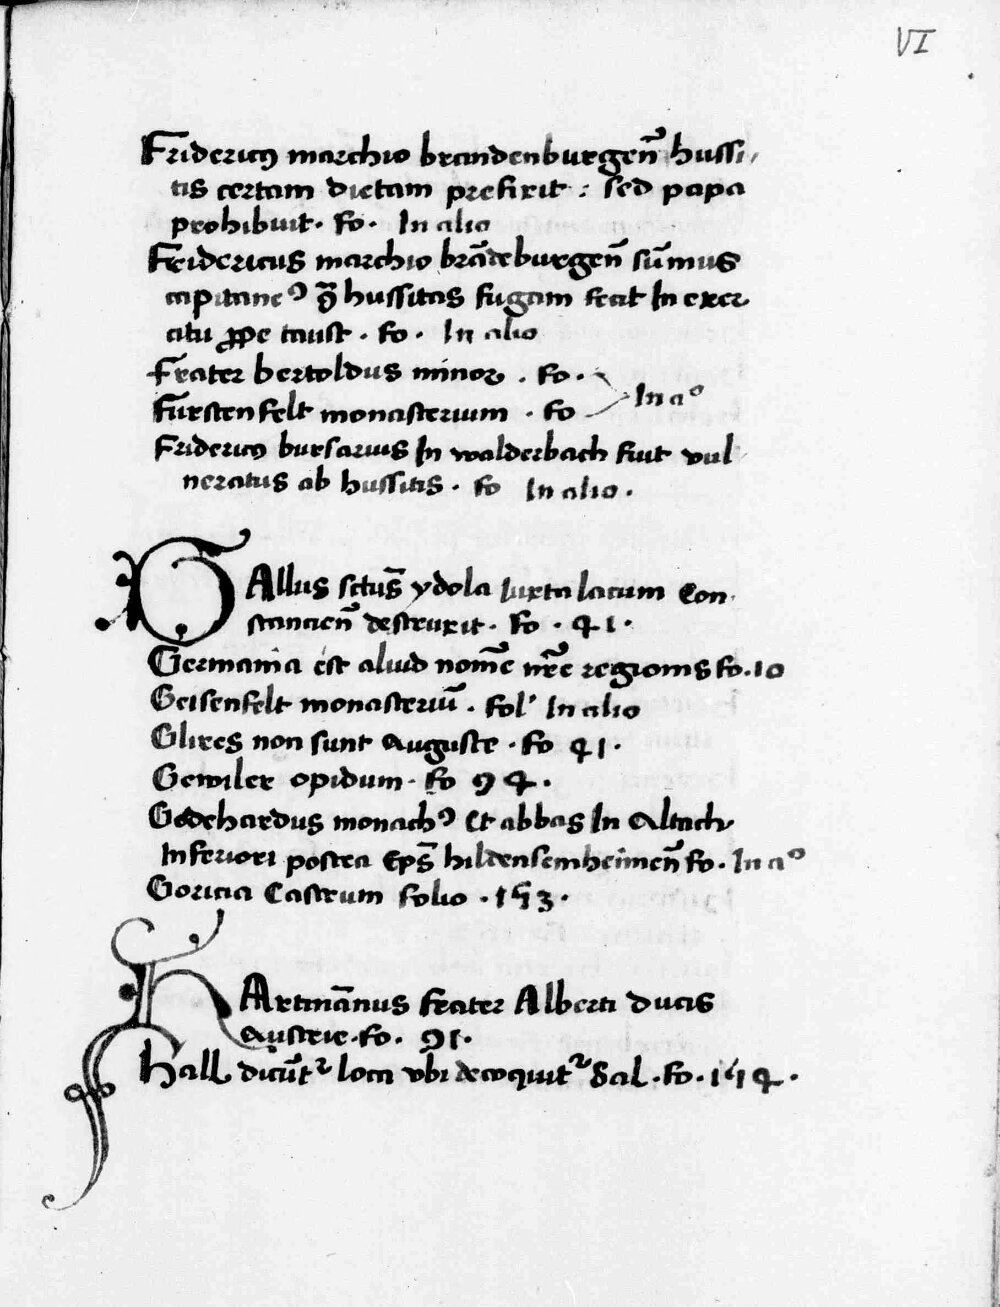 VI
Fridericꝰ marchio brandenburgen̄ hussi
tis certam dietam prefixit : sed papa
prohibuit. fo. In alio
Fridericus marchio brādeburgen̄ sūmus
capitaneꝰ hussitas fugam fecit In exer
citu ꝓpe taust . fo . In alio
Frater bertoldus minor . fo .
In aº
Fürstenfelt monasterium . fo
Fridericꝰ bursarius In walderbach fuit vul
neratus ab hussitis . fo In alio .
GAllus sctūs ydola Iuxta lacum Con
stancien̄ destruxit . fo . 41 .
Germania est aliud nomē nr̄e regionis fo . 10
Geisenfelt monasteriū . fol' In alio
Glires non sunt Auguste . fo 41 .
Gewiler opidum . fo 94 .
Godehardus monachꝰ Et abbas In Altach
Inferiori postea Ep̄s hildensemheimen̄ fo . In aº
Goricia Castrum folio . 153 .
HArtmānus frater Alberti ducis
Austrie . fo . 91 .
Hall dicūtr loca vbi decoquitr Sal . fo . 154 .